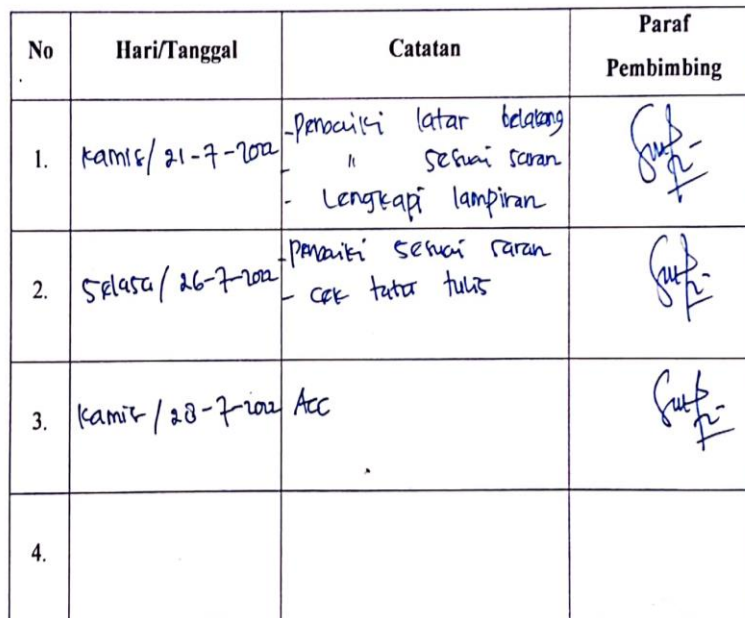 No Hari/Tanggal Catatan Paraf Pembimbing
1. Kamis/ 21-7-2022 - Perbaiki latar belakang
- " sesuai saran
- Lengkapi lampiran
2. Selasa/ 26-7-2022 - Perbaiki sesuai saran
- Cek tata tulis
3. Kamis/ 28-7-2022 Acc
4.